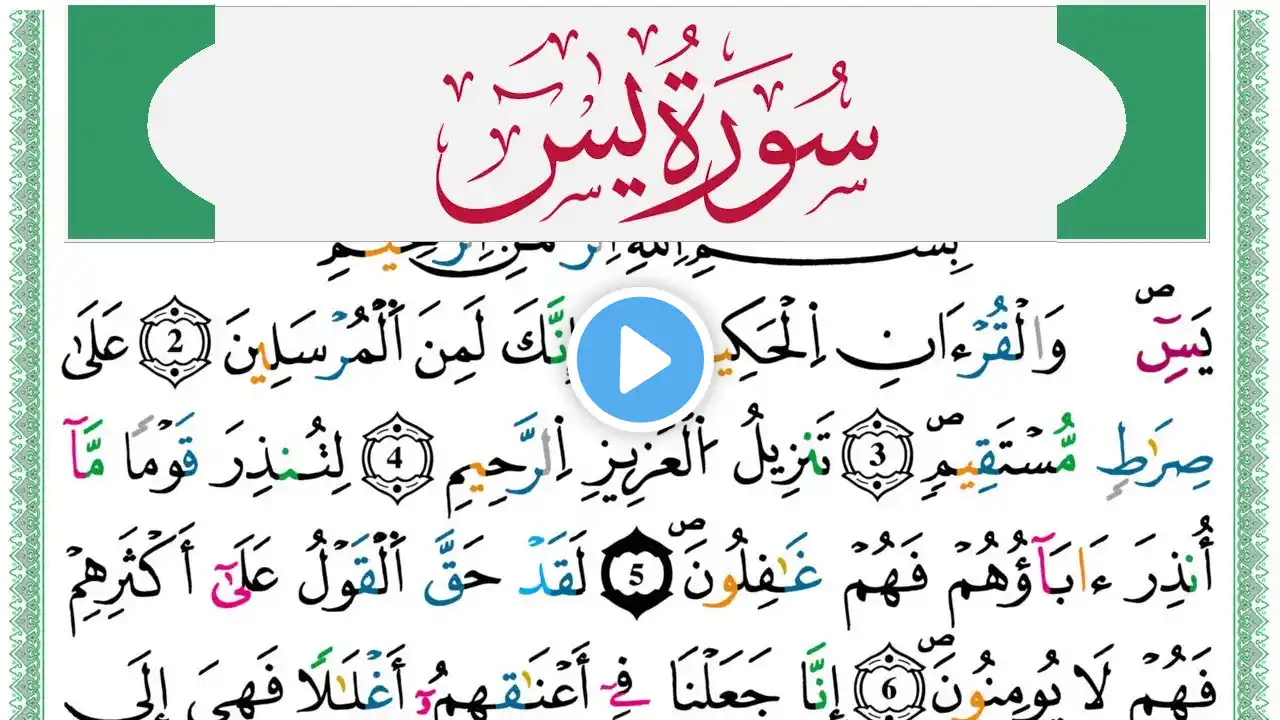 سُورَةُ يسٓ
بِسْمِ اِللَّهِ اِلرَّحْمَٰنِ اِلرَّحِيمِ
يَسِٓۖ وَالْقُرْءَانِ اِلْحَكِيمِ إِنَّكَ لَمِنَ اَلْمُرْسَلِينَ 2 عَلَىٰ
صِرَٰطٖ مُّسْتَقِيمٖۖ 3 تَنزِيلُ اُلْعَزِيزِ اِلرَّحِيمِ 4 لِتُنذِرَ قَوْماٗ مَّآ
أُنذِرَ ءَابَآؤُهُمْ فَهُمْ غَٰفِلُونَۖ 5 لَقَدْ حَقَّ اَلْقَوْلُ عَلَىٰٓ أَكْثَرِهِمْ
فَهُمْ لَا يُومِنُونَۖ 6 إِنَّا جَعَلْنَا فِےٓ أَعْنَٰقِهِمُۥٓ أَغْلَٰلاٗ فَهِىَ إِلَى